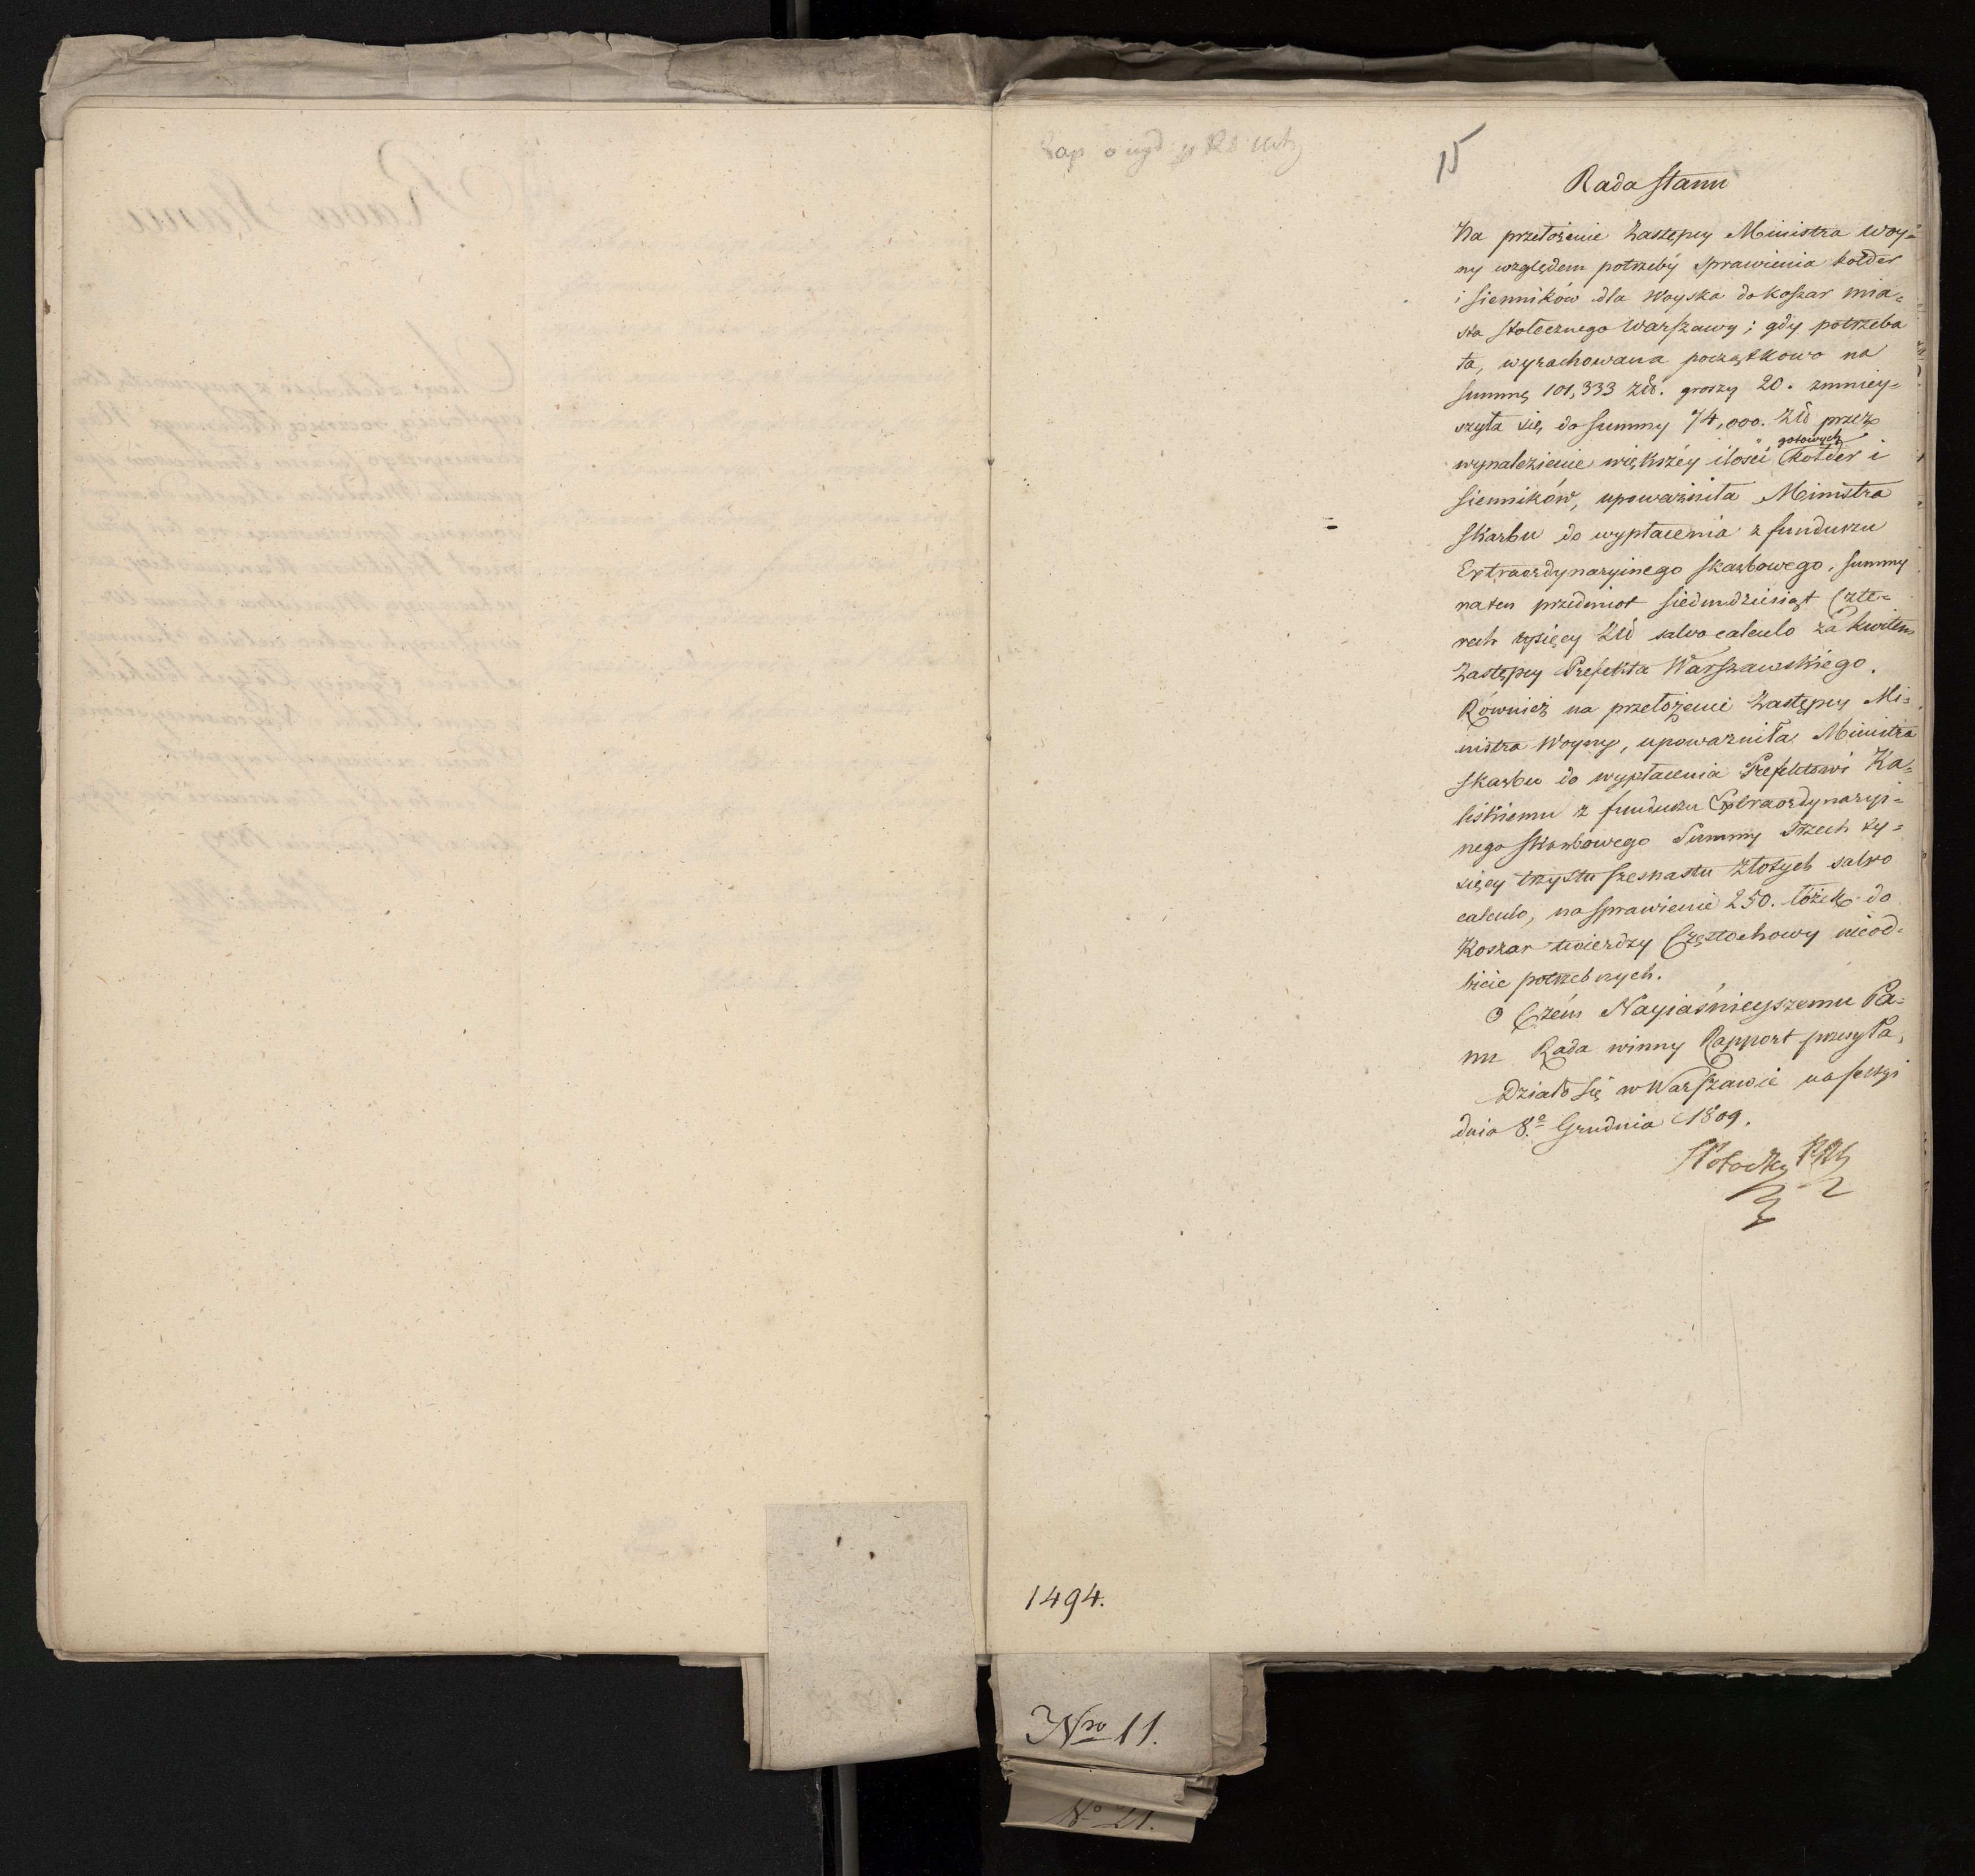 15
Rada Stanu
Na przełożenie Zastępcy Ministra Woy=
ny względem potrzeby sprawienia kołder
i sienników dla Woyska do koszar mia=
sta stołecznego Warszawy; gdy potrzeba
ta, wyrachowana początkowo na
summę 101,333 Złł. groszy 20. zmniey=
szyła się do summy 74,000. Złł przez
gotowych
wynalezienie większéy ilości kołder i
sienników, upoważniła Ministra
Skarbu do wypłacenia z funduszu
Extraordynaryinego skarbowego, summy
na ten przedmiot siedmdziesiąt Czte=
rech tysięcy Złł salvo calculo za kwitem
Zastępcy Prefekta Warszawskiego.
Również na przełożenie Zastępcy Mi=
nistra Woyny, upoważniła Ministra
Skarbu do wypłacenia Prefektowi Ka=
liskiemu z funduszu Extraordynaryi=
nego Skarbowego Summy Trzech ty=
sięcy trzystu szesnastu Złotych salvo
calculo, na sprawienie 250. łóżek do
Koszar twierdzy Częstochowy nieod=
bicie potrzebnych.
O Czém Nayiaśnieyszemu Pa=
nu Rada winny Rapport przesyła.
Działo się w Warszawie na sessyi
dnia 8.º Grudnia 1809.
1494.
Nro 11.
Nº 21.